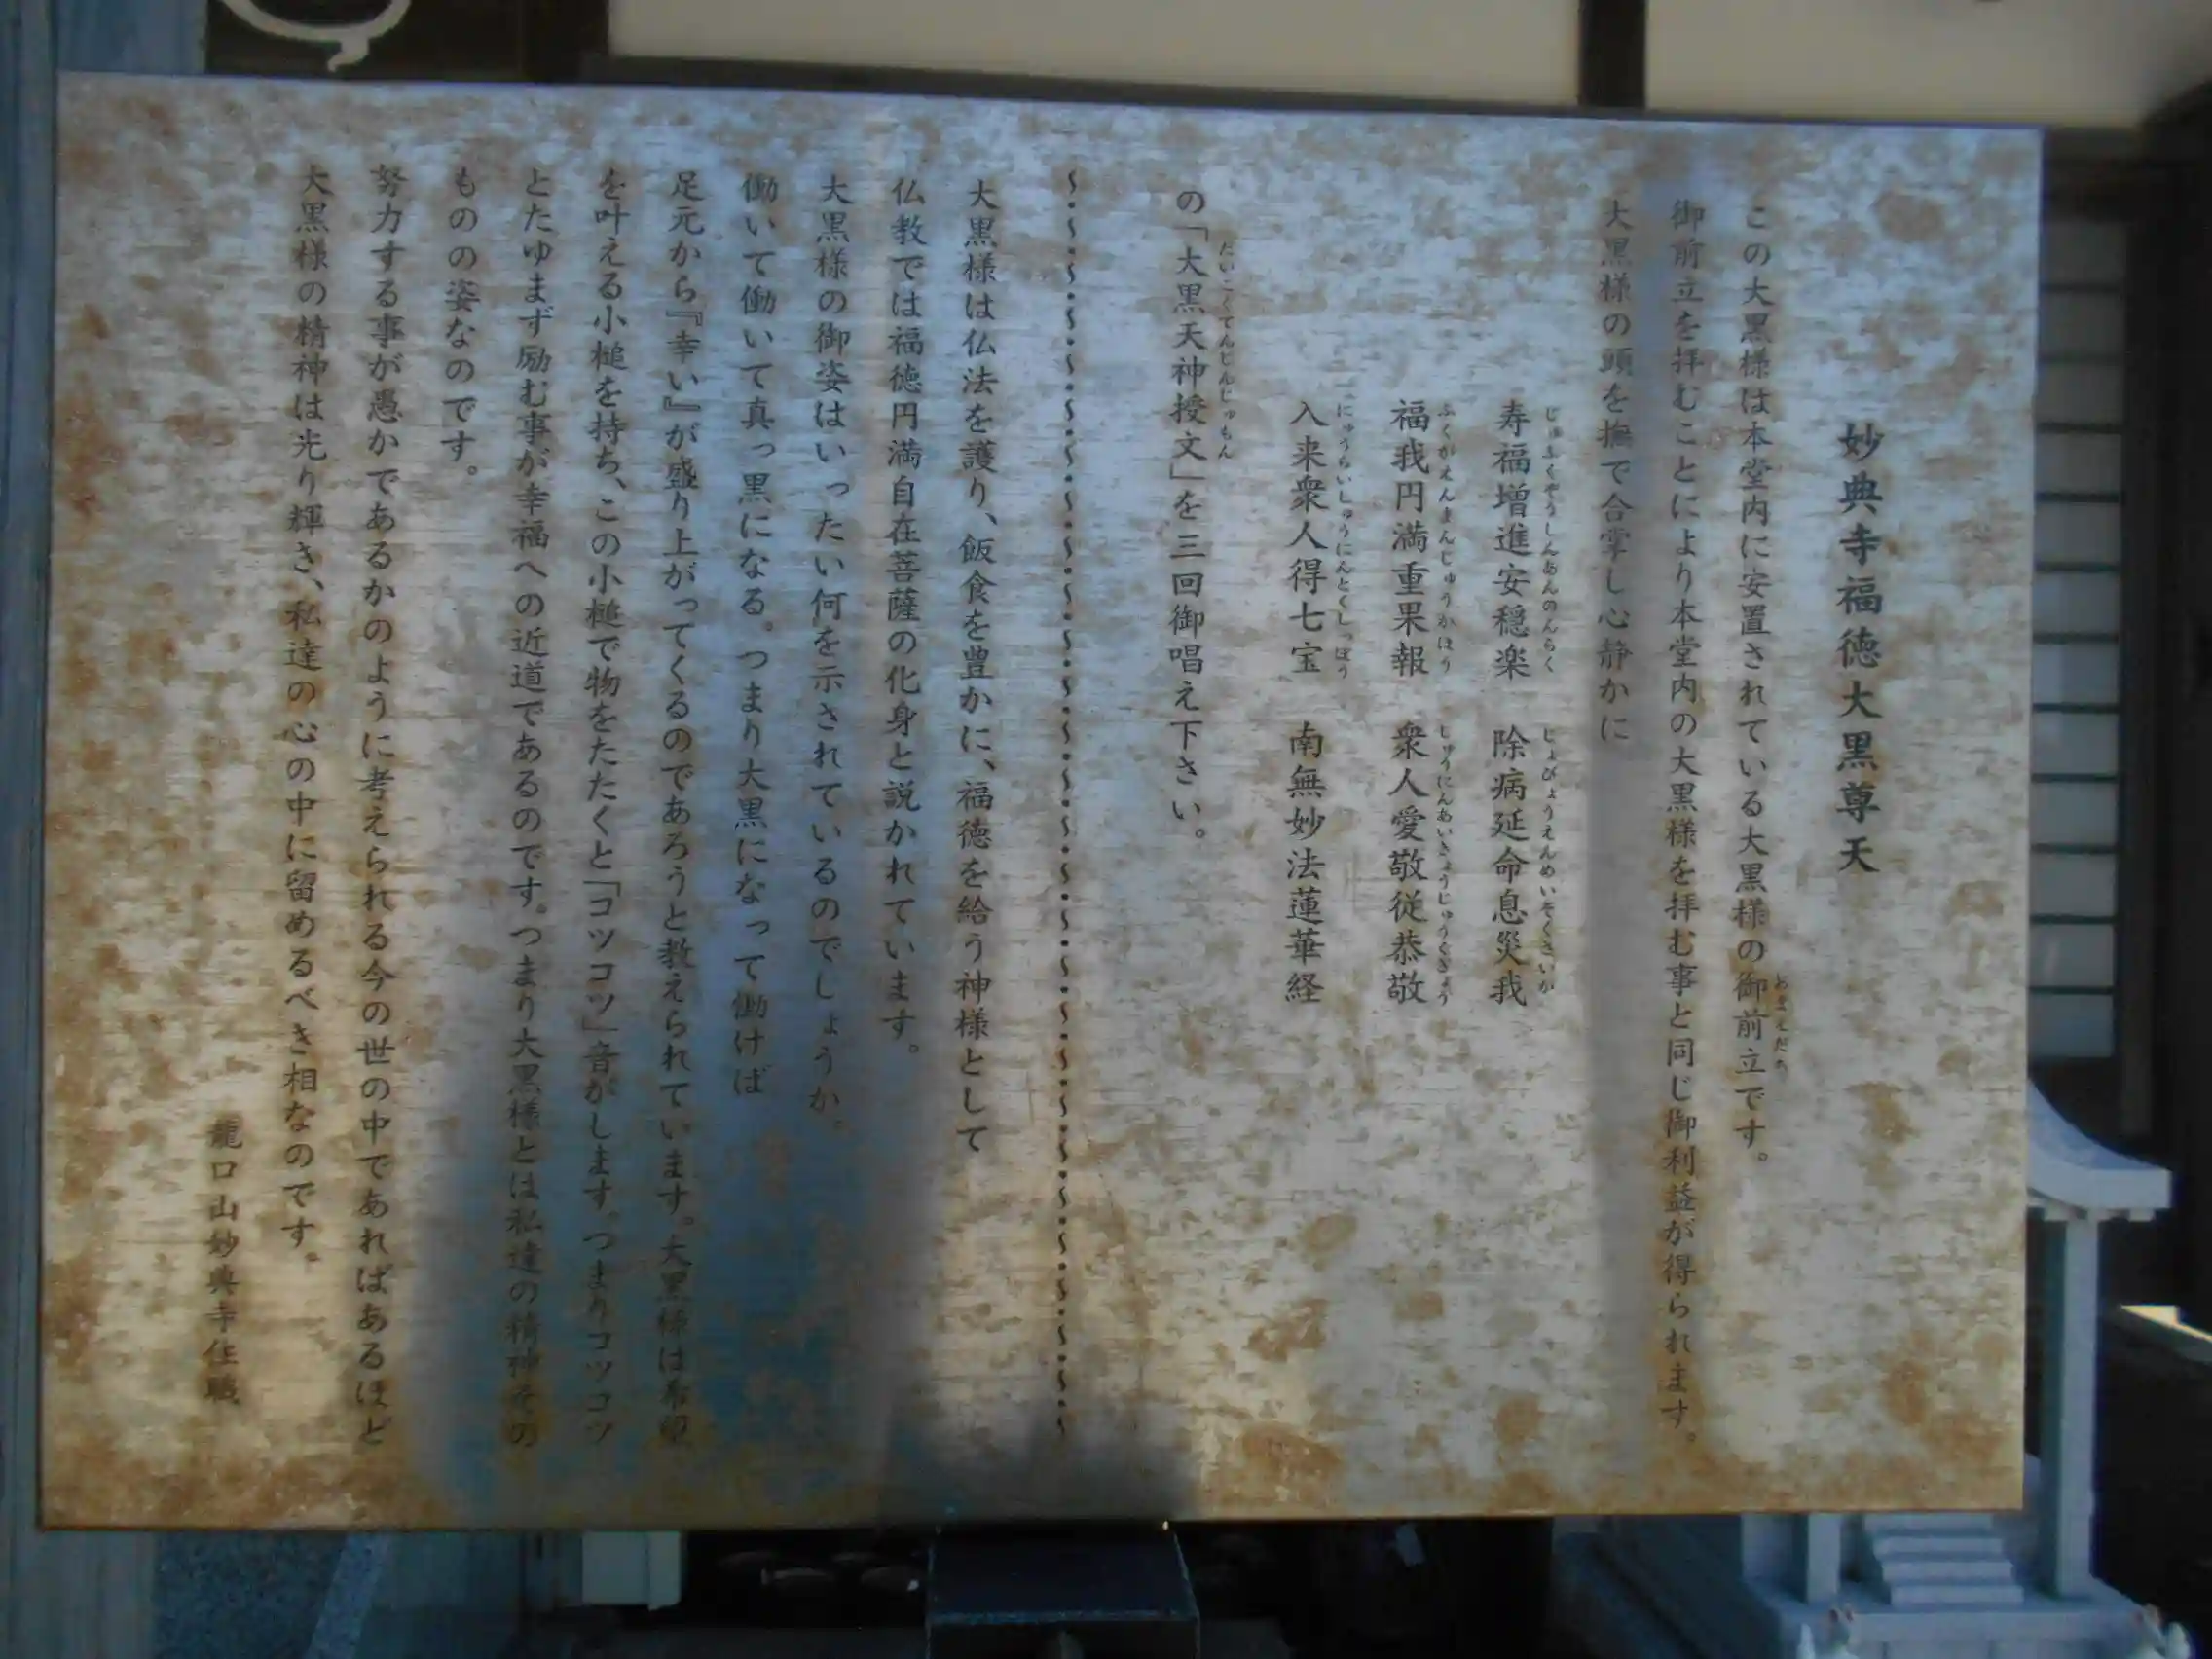 妙典寺福徳大黒尊天
この大黒様は本堂内に安置されている大黒様の御前立です。
おまえだち
御前立を拝むことにより本堂内の大黒様を拝む事と同じ御利益が得られます。
大黒様の頭を撫で合掌し心静かに
寿福増進安穏楽 除病延命息災我
じゅふくぞうしんあんのんらく じょびょうえんめいそくさいが
福我円満重果報 衆人愛敬従恭敬
ふくがえんまんじゅうかほう しゅうにんあいきょうじゅうくぎょう
入来衆人得七宝 南無妙法蓮華経
にゅうらいしゅうにんとくしっぽう
の「大黒天神授文」を三回御唱え下さい。
だいこくてんじんじゅもん
大黒様は仏法を護り、飯食を豊かに、福徳を給う神様として
仏教では福徳円満自在菩薩の化身と説かれています。
大黒様の御姿はいったい何を示されているのでしょうか。
働いて働いて真っ黒になる。つまり大黒になって働けば
足元から『幸い』が盛り上がってくるのであろうと教えられています。大黒様は希望
を叶える小槌を持ち、この小槌で物をたたくと「コツコツ」音がします。つまりコツコツ
とたゆまず励む事が幸福への近道であるのです。つまり大黒様とは私達の精神その
ものの姿なのです。
努力する事が愚かであるかのように考えられる今の世の中であればあるほど
大黒様の精神は光り輝き、私達の心の中に留めるべき相なのです。
龍口山妙典寺住職